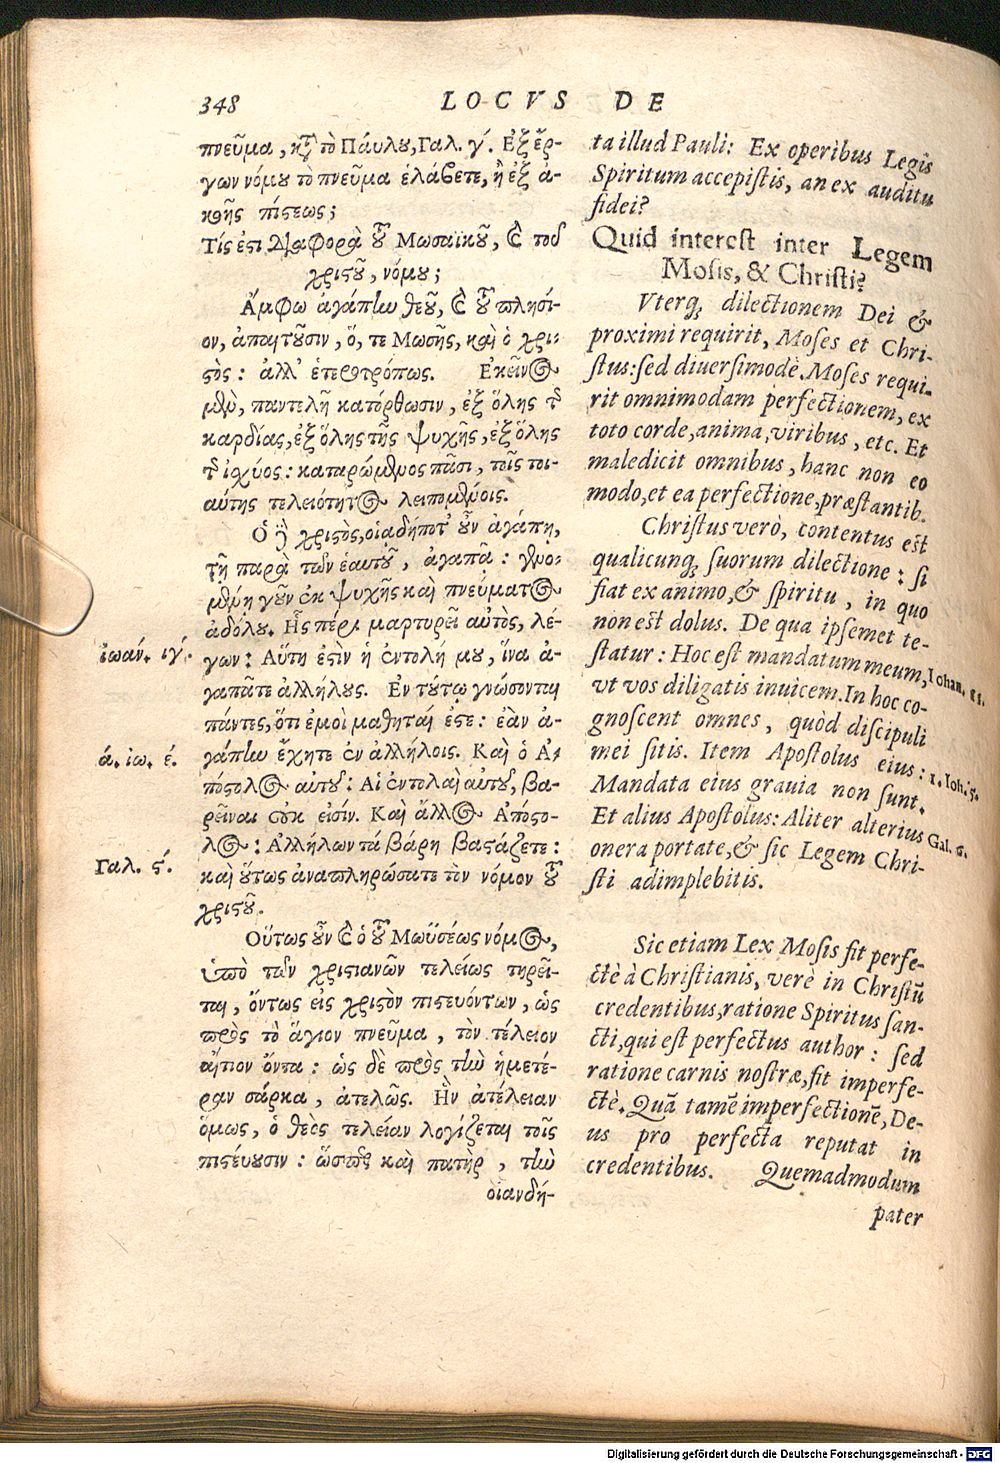 348
LOCVS DE
πνεῦμα, κỳ τὸ Παύλου, Γαλ. γ´. Ἐξ ἔρ-
γων νόμου τὸ πνεῦμα ἐλάβετε, ἢ ἐξ ἀ-
κοῆς πίστεως;
Τίς ἐστι διαφορὰ τοῦ Μωσαϊκοῦ, καὶ τοῦ
χριστοῦ, νόμου;
Ἄμφω ἀγάπην θεοῦ, καὶ τοῦ πλησί-
ον, ἀπαιτοῦσιν, ὅ, τε Μωσῆς, καὶ ὁ χρι-
στός: ἀλλ' ἑτεροτρόπως. Ἐκεῖνος
μὲν, παντελῆ κατόρθωσιν, ἐξ ὅλης τῆς
καρδίας, ἐξ ὅλης τῆς ψυχῆς, ἐξ ὅλης
τῆς ἰσχύος: καταρώμενος πᾶσι, τοῖς τοι-
αύτης τελειότητος λειπομένοις.
Ὁ δὲ χριστὸς, οἱαδήποτ' οὖν ἀγάπῃ,
τῇ παρὰ τῶν ἑαυτοῦ, ἀγαπᾷ: γινο-
μένῃ γοῦν ἐκ ψυχῆς καὶ πνεύματος
ἀδόλου. Ἧς πέρι μαρτυρεῖ αὐτὸς, λέ-
γων: Αὕτη ἐστὶν ἡ ἐντολή μου, ἵνα ἀ-
γαπᾶτε ἀλλήλους. Ἐν τούτῳ γνώσονται
πάντες, ὅτι ἐμοὶ μαθηταί ἐστε: ἐὰν ἀ-
γάπην ἔχητε ἐν ἀλλήλοις. Καὶ ὁ Ἀ-
πόστολος αὐτοῦ: Αἱ ἐντολαὶ αὐτοῦ, βα-
ρεῖναι οὐκ εἰσίν. Καὶ ἄλλος Ἀπόστο-
λος: Ἀλλήλων τὰ βάρη βαστάζετε:
καὶ οὕτως ἀναπληρώσατε τὸν νόμον τοῦ
χριστοῦ.
Οὕτως οὖν καὶ ὁ τοῦ Μωϋσέως νόμος,
ὑπὸ τῶν χριστιανῶν τελείως τηρεῖ-
ται, ὄντως εἰς χριστὸν πιστευόντων, ὡς
πρὸς τὸ ἅγιον πνεῦμα, τὸν τέλειον
αἴτιον ὄντα: ὡς δὲ πρὸς τὴν ἡμετέ-
ραν σάρκα, ἀτελῶς. Ἣν ἀτέλειαν
ὅμως, ὁ θεὸς τελείαν λογίζεται τοῖς
πιστεύουσιν: ὥσπερ καὶ πατὴρ, τὴν
οἱανδή-
ἰωάν. ιγ´.
ά. ἰω. έ.
Γαλ. ς´.
ta illud Pauli: Ex operibus Legis
Spiritum accepistis, an ex auditu
fidei?
Quid interest inter Legem
Mosis, & Christi?
Vterq; dilectionem Dei &
proximi requirit, Moses et Chri-
stus: sed diuersimodè. Moses requi-
rit omnimodam perfectionem, ex
toto corde, anima, viribus, etc. Et
maledicit omnibus, hanc non eo
modo, et ea perfectione, præstantib.
Christus verò, contentus est
qualicunq; suorum dilectione: si
fiat ex animo, & spiritu, in quo
non est dolus. De qua ipsemet te-
statur: Hoc est mandatum meum,
vt vos diligatis inuicem. In hoc co-
gnoscent omnes, quòd discipuli
mei sitis. Item Apostolus eius:
Mandata eius grauia non sunt.
Et alius Apostolus: Aliter alterius
onera portate, & sic Legem Chri-
sti adimplebitis.
Sic etiam Lex Mosis fit perfe-
ctè à Christianis, verè in Christũ
credentibus, ratione Spiritus san-
cti, qui est perfectus author: sed
ratione carnis nostræ, fit imperfe-
ctè. Quã tamẽ imperfectionẽ, De-
us pro perfecta reputat in
credentibus. Quemadmodum
pater
1. Ioh. 5.
Gal. 6.
Digitalisierung gefördert durch die Deutsche Forschungsgemeinschaft - DFG